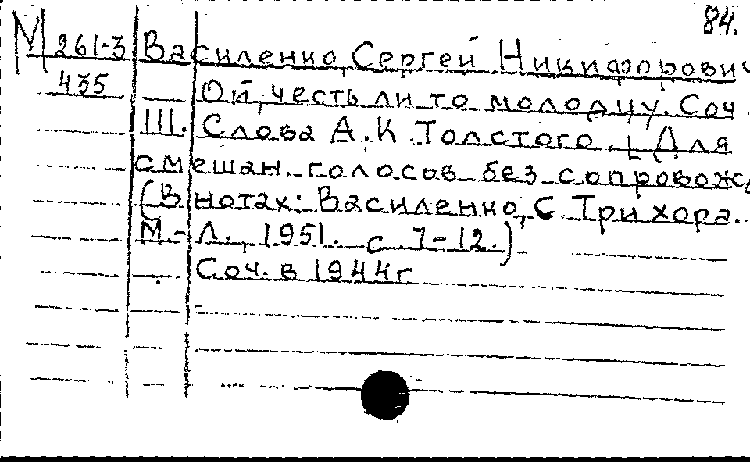 84.
М 261-3 Василенко, Сергей Никифорович
435 Ой, честь ли то молодцу. Соч.
III. Слова А.К. Толстого. [Для
смешан. голосов без сопровожд
(В нотах: Василенко, С. Три хора.
М.-Л., 1951. с. 7-12.)
Соч. в 1944г